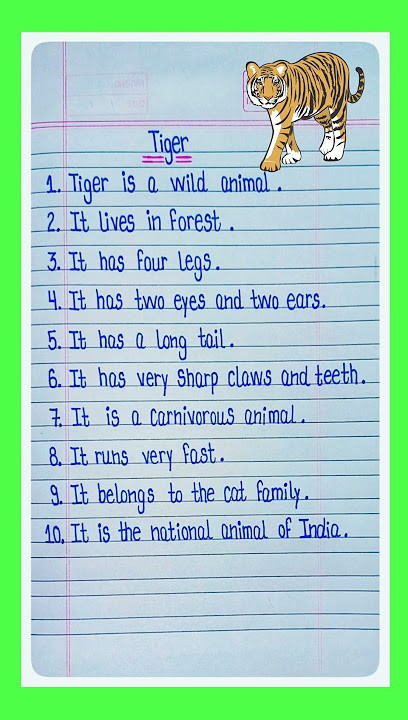 Tiger
1. Tiger is a wild animal.
2. It lives in forest.
3. It has four legs.
4. It has two eyes and two ears.
5. It has a long tail.
6. It has very sharp claws and teeth.
7. It is a carnivorous animal.
8. It runs very fast.
9. It belongs to the cat family.
10. It is the national animal of India.